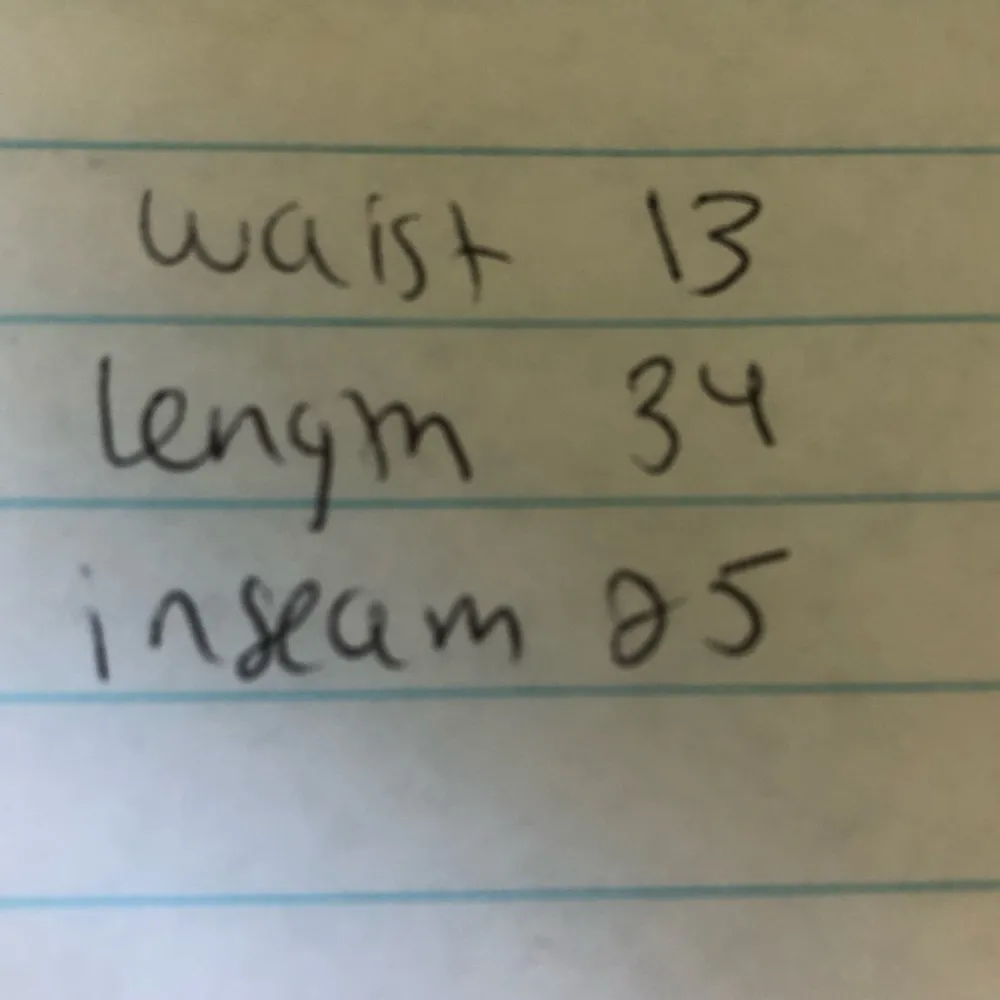 waist 13
length 34
inseam 25